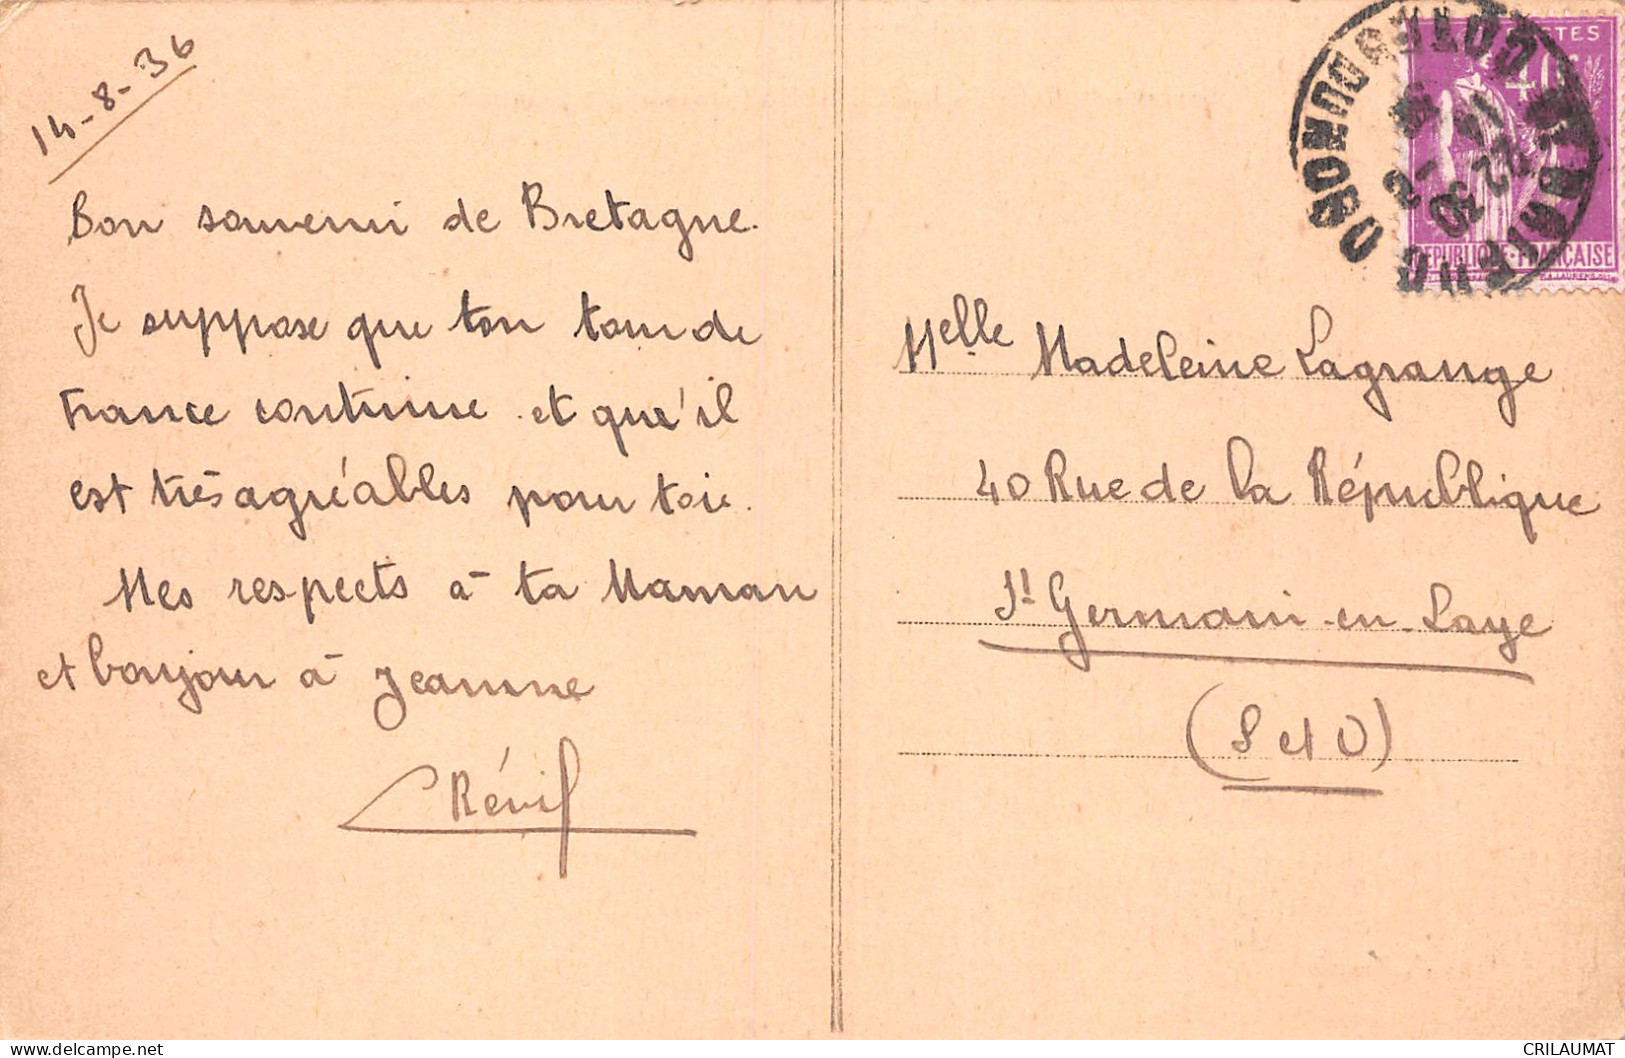 14-8-36
Bon souvenir de Bretagne.
Je suppose que ton tour de
France continue et qu'il
est très agréables pour toi.
Mes respects à ta Maman
et bonjour à Jeannine
POSTES
40c
REPUBLIQUE-FRANÇAISE
Melle Madeleine Lagrange
40 Rue de la République
St Germain-en-Laye
(S et O)
CRILAUMAT